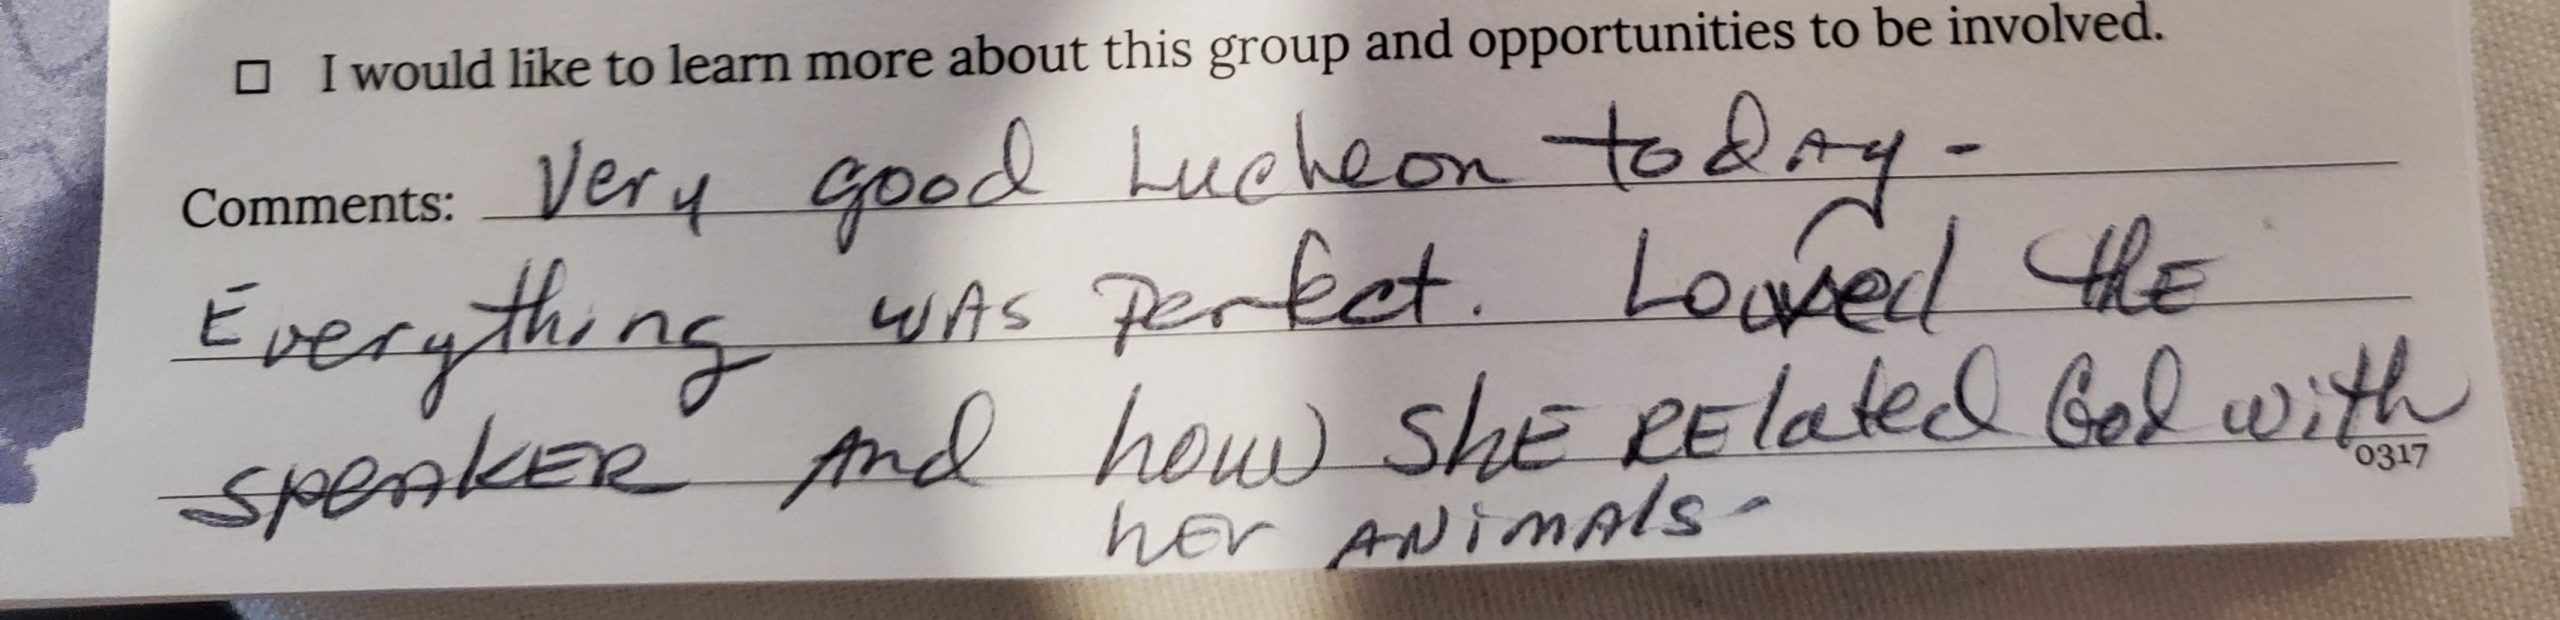 ☐ I would like to learn more about this group and opportunities to be involved.
Comments: Very good Lucheon today -
Everything was Perfect. Loved the
speaker And how ShE RElated God with
0317
her ANimAls -